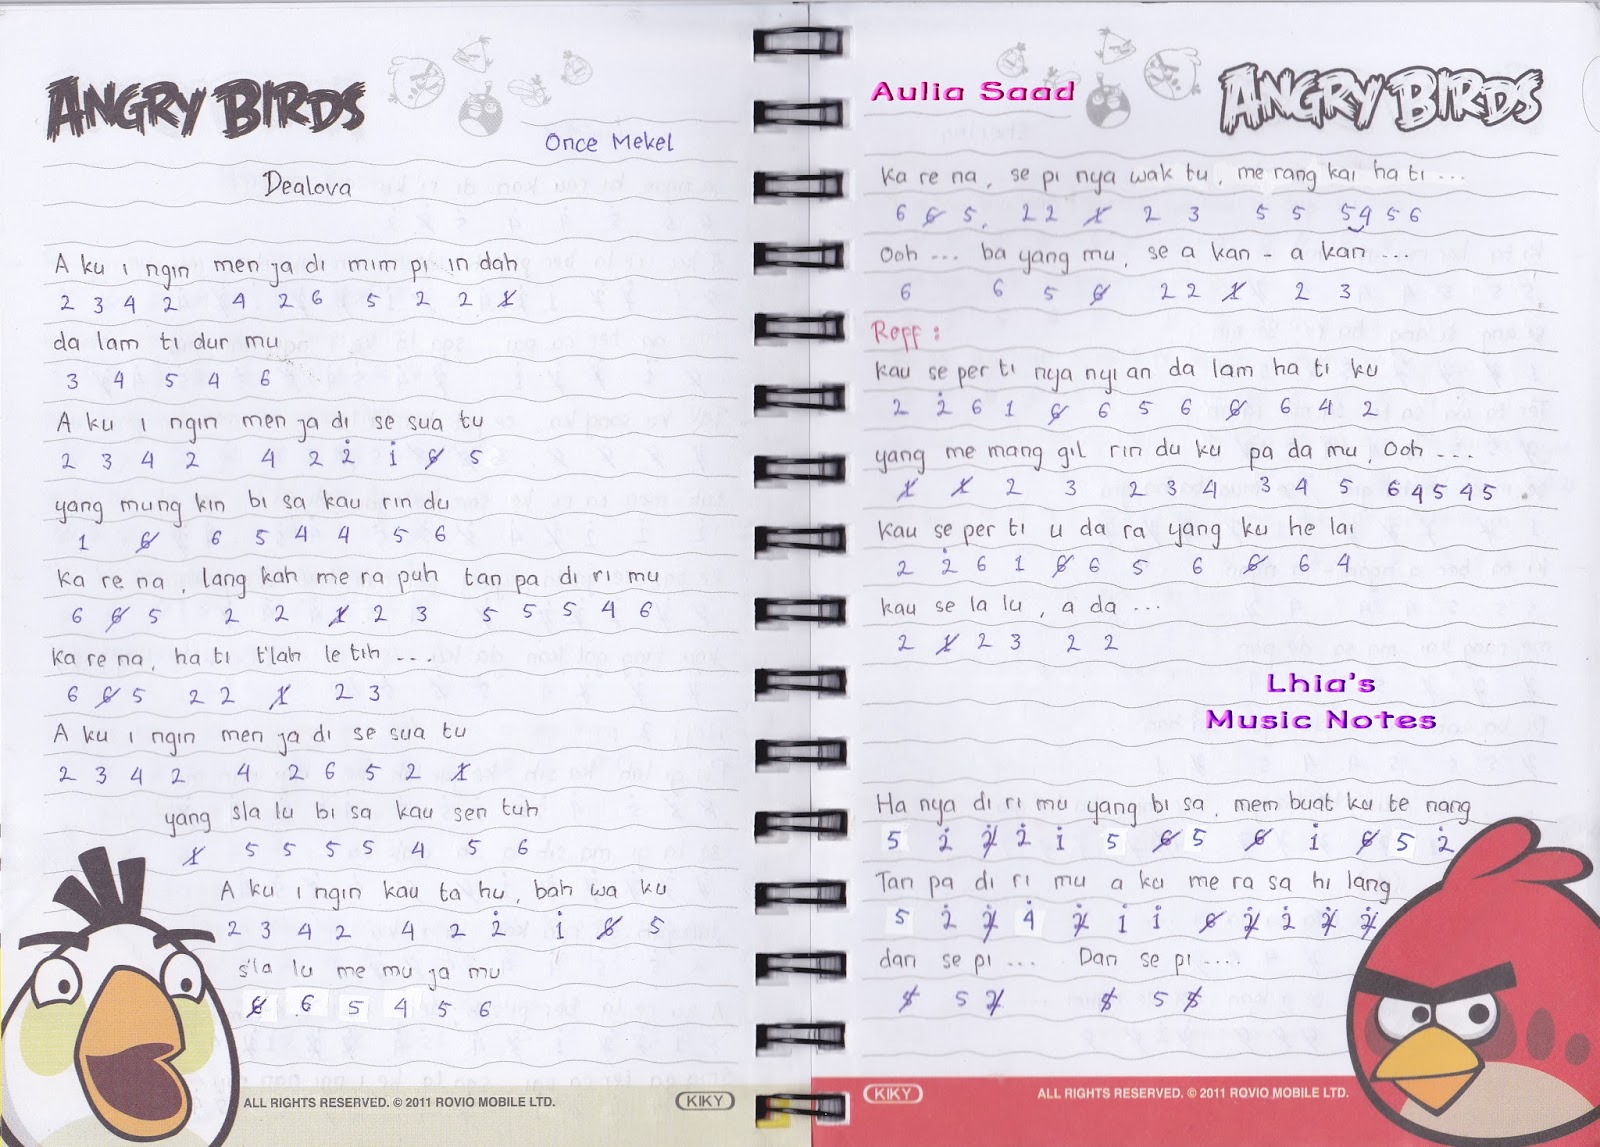 ANGRY BIRDS
Once Mekel
Dealova
A ku i ngin men ja di mim pi in dah
2 3 4 2 4 2 6 5 2 2 1̸
da lam ti dur mu
3 4 5 4 6
A ku i ngin men ja di se sua tu
2 3 4 2 4 2 2̇ 1̇ 6̸ 5
yang mung kin bi sa kau rin du
1 6̸ 6 5 4 4 5 6
Ka re na, lang kah me ra puh tan pa di ri mu
6 6̸ 5 2 2 1̸ 2 3 5 5 5 4 6
Ka re na, ha ti t'lah le tih ...
6 6̸ 5 2 2 1̸ 2 3
A ku i ngin men ja di se sua tu
2 3 4 2 4 2 6 5 2 1̸
yang sla lu bi sa kau sen tuh
1̸ 5 5 5 5 4 5 6
A ku i ngin kau ta hu, bah wa ku
2 3 4 2 4 2 2̇ 1̇ 6̸ 5
s'la lu me mu ja mu
6̸ 6 5 4 5 6
ALL RIGHTS RESERVED. © 2011 ROVIO MOBILE LTD.
KIKY
Aulia Saad
ANGRY BIRDS
Ka re na, se pi nya wak tu, me rang kai ha ti ...
6 6̸ 5, 2 2 1̸ 2 3 5 5 5 4 5 6
Ooh ... ba yang mu, se a kan - a kan ...
6 6 5 6̸ 2 2 1̸ 2 3
Reff :
Kau se per ti nya nyi an da lam ha ti ku
2 2̇ 6 1 6̸ 6 5 6 6̸ 6 4 2
yang me mang gil rin du ku pa da mu, Ooh ...
1̸ 1̸ 2 3 2 3 4 3 4 5 6 4 5 4 5
Kau se per ti u da ra yang ku he lai
2 2̇ 6 1 6̸ 6 5 6 6̸ 6 4
Kau se la lu, a da ...
2 1̸ 2 3 2 2
Lhia's
Music Notes
Ha nya di ri mu yang bi sa, mem buat ku te nang
5 2̇ 2̸̇ 2̇ 1̇ 5 6̸ 5 6̸ 1̇ 6̸ 5 2̇
Tan pa di ri mu a ku me ra sa hi lang
5 2̇ 2̸̇ 4̇ 2̸̇ 1̇ 1̇ 6̸ 2̸̇ 2̇ 2̸̇ 2̸̇
dan se pi ... Dan se pi ....
5̸ 5 2̸ 5̸ 5 5̸
KIKY
ALL RIGHTS RESERVED. © 2011 ROVIO MOBILE LTD.